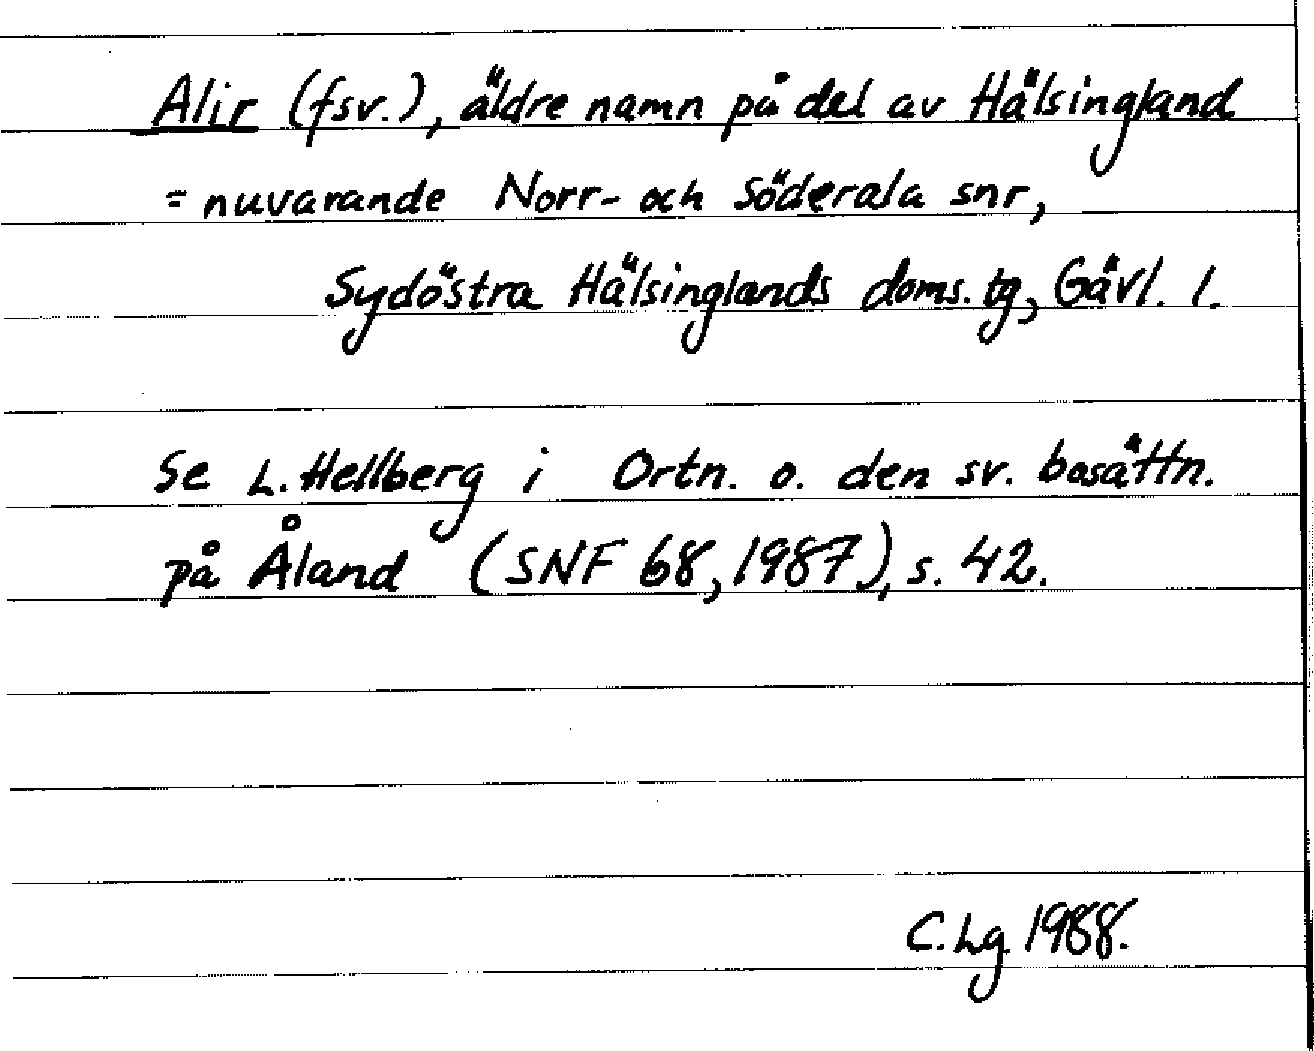 Alir (fsv.), äldre namn på del av Hälsingland
= nuvarande Norr- och Söderala snr,
Sydöstra Hälsinglands doms. tg, Gävl. l.
Se L. Hellberg i Ortn. o. den sv. bosättn.
på Åland (SNF 68, 1987), s. 42.
C. Lg 1988.